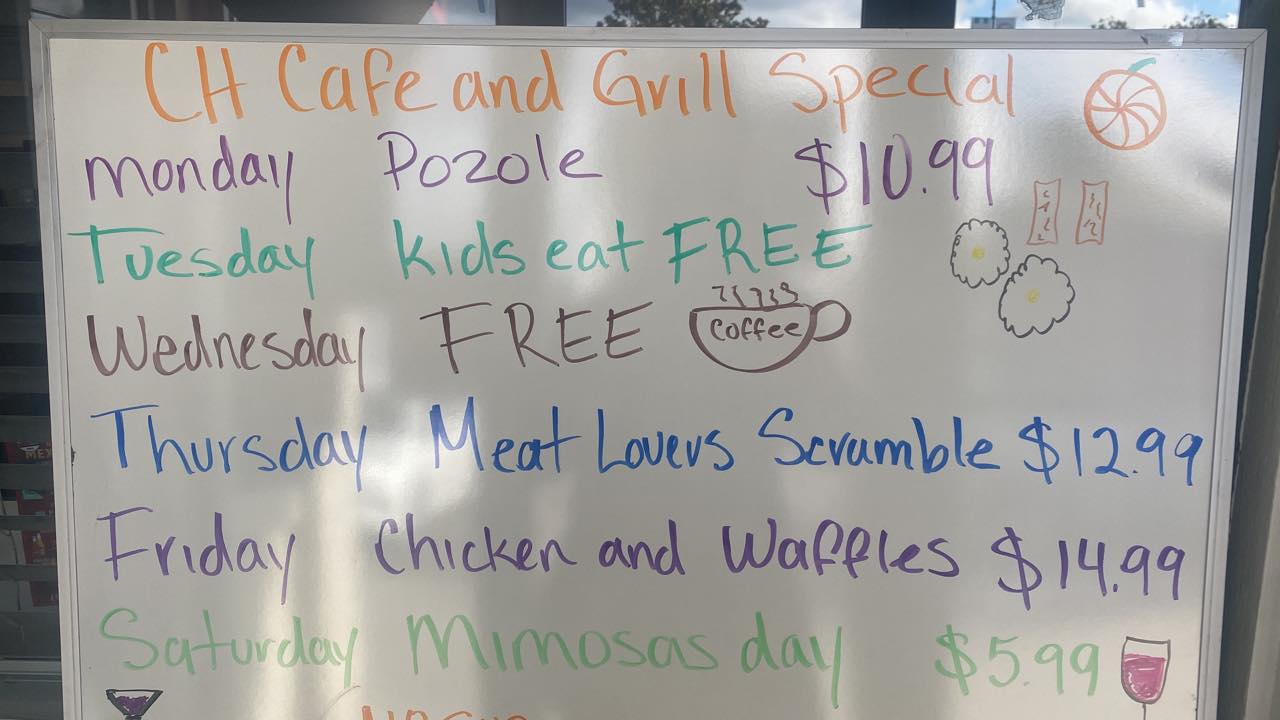 CH Cafe and Grill Special
monday Pozole $10.99
Tuesday kids eat FREE
Wednesday FREE Coffee
Thursday Meat Lovers Scramble $12.99
Friday Chicken and Waffles $14.99
Saturday Mimosas day $5.99